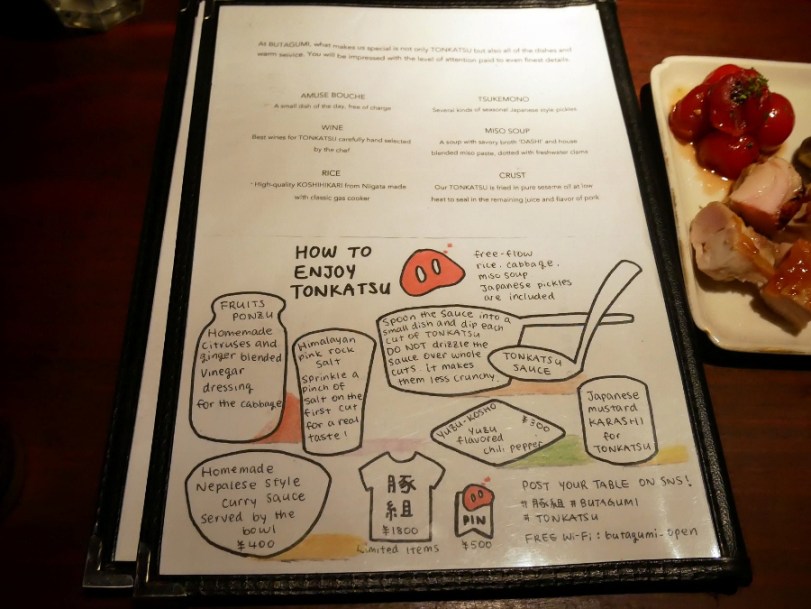 At BUTAGUMI, what makes us special is not only TONKATSU but also all of the dishes and
warm service. You will be impressed with the level of attention paid to even finest details.
AMUSE BOUCHE
A small dish of the day, free of charge
TSUKEMONO
Several kinds of seasonal Japanese style pickles
WINE
Best wines for TONKATSU carefully hand selected
by the chef
MISO SOUP
A soup with savory broth 'DASHI' and house
blended miso paste, dotted with freshwater clams
RICE
High-quality KOSHIHIKARI from Niigata made
with classic gas cooker
CRUST
Our TONKATSU is fried in pure sesame oil at low
heat to seal in the remaining juice and flavor of pork
HOW TO
ENJOY
TONKATSU
free-flow
rice, cabbage,
miso soup
Japanese pickles
are included
FRUITS
PONZU
Homemade
citruses and
ginger blended
vinegar
dressing
for the cabbage
Himalayan
pink rock
salt
sprinkle a
pinch of
salt on the
first cut
for a real
taste!
Spoon the sauce into a
small dish and dip each
cut of TONKATSU
DO NOT drizzle the
sauce over whole
cuts. it makes
them less crunchy.
TONKATSU
SAUCE
YUZU-KOSHO
¥300
YUZU
flavored
chili pepper
Japanese
mustard
KARASHI
for
TONKATSU
Homemade
Nepalese style
curry sauce
served by the
bowl
¥400
豚
組
¥1800
Limited items
PIN
¥500
POST YOUR TABLE ON SNS!
#豚組 #BUTAGUMI
#TONKATSU
FREE Wi-Fi: butagumi-open